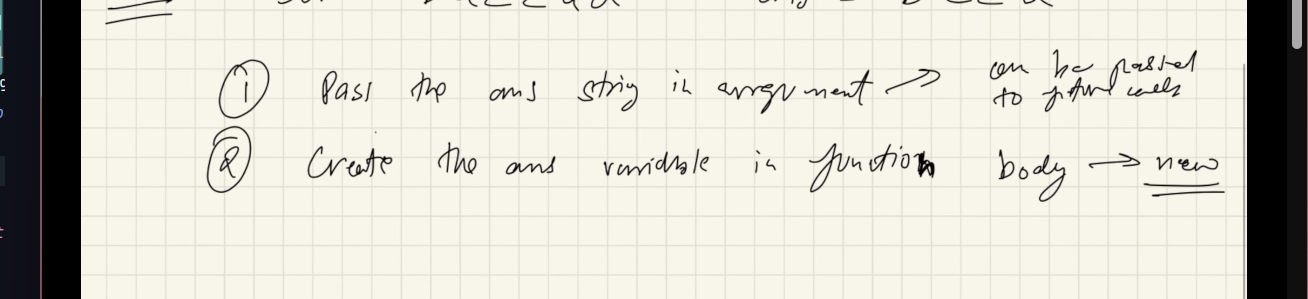 ① Pass the ans string in arrgument → can be passed
to futurl calls
② Create the ans variable in function body → new